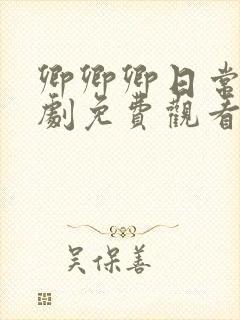 卿卿卿日常
劇免費觀看
吳保善